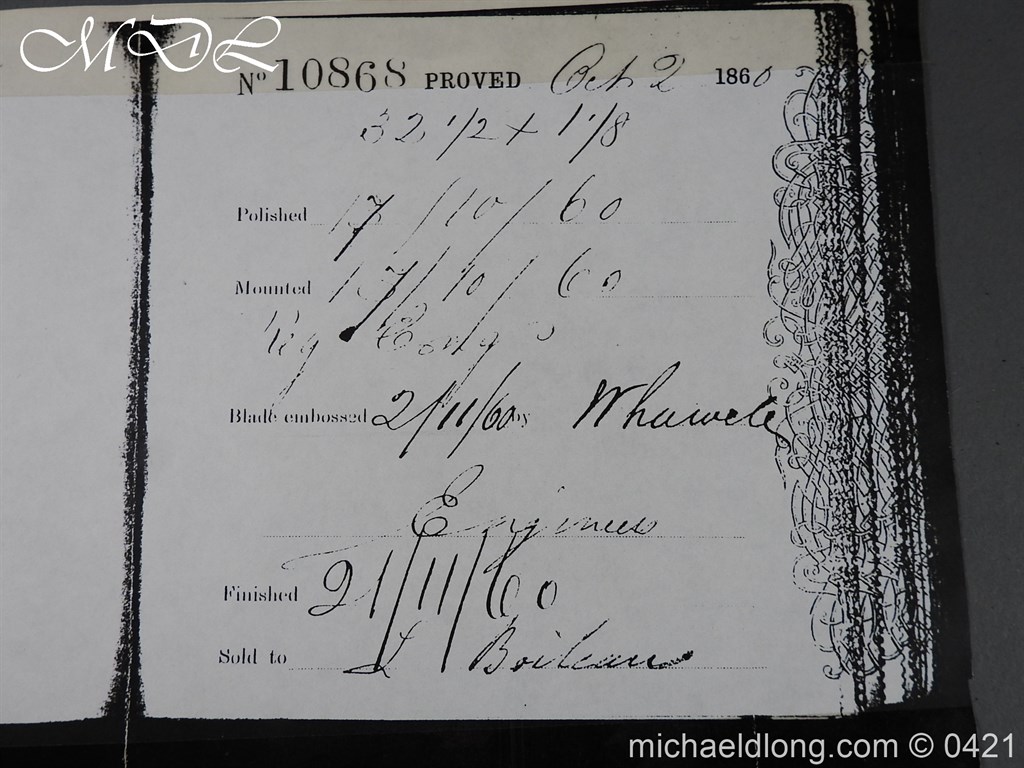 MDL
Nº 10868 PROVED Oct 2 1860
32 1/2 + 1 1/8
Polished 17/10/60
Mounted 17/10/60
Blade embossed 2/11/60 by
Engineer
Finished 21/11/60
Sold to L Boileau
michaeldlong.com © 0421